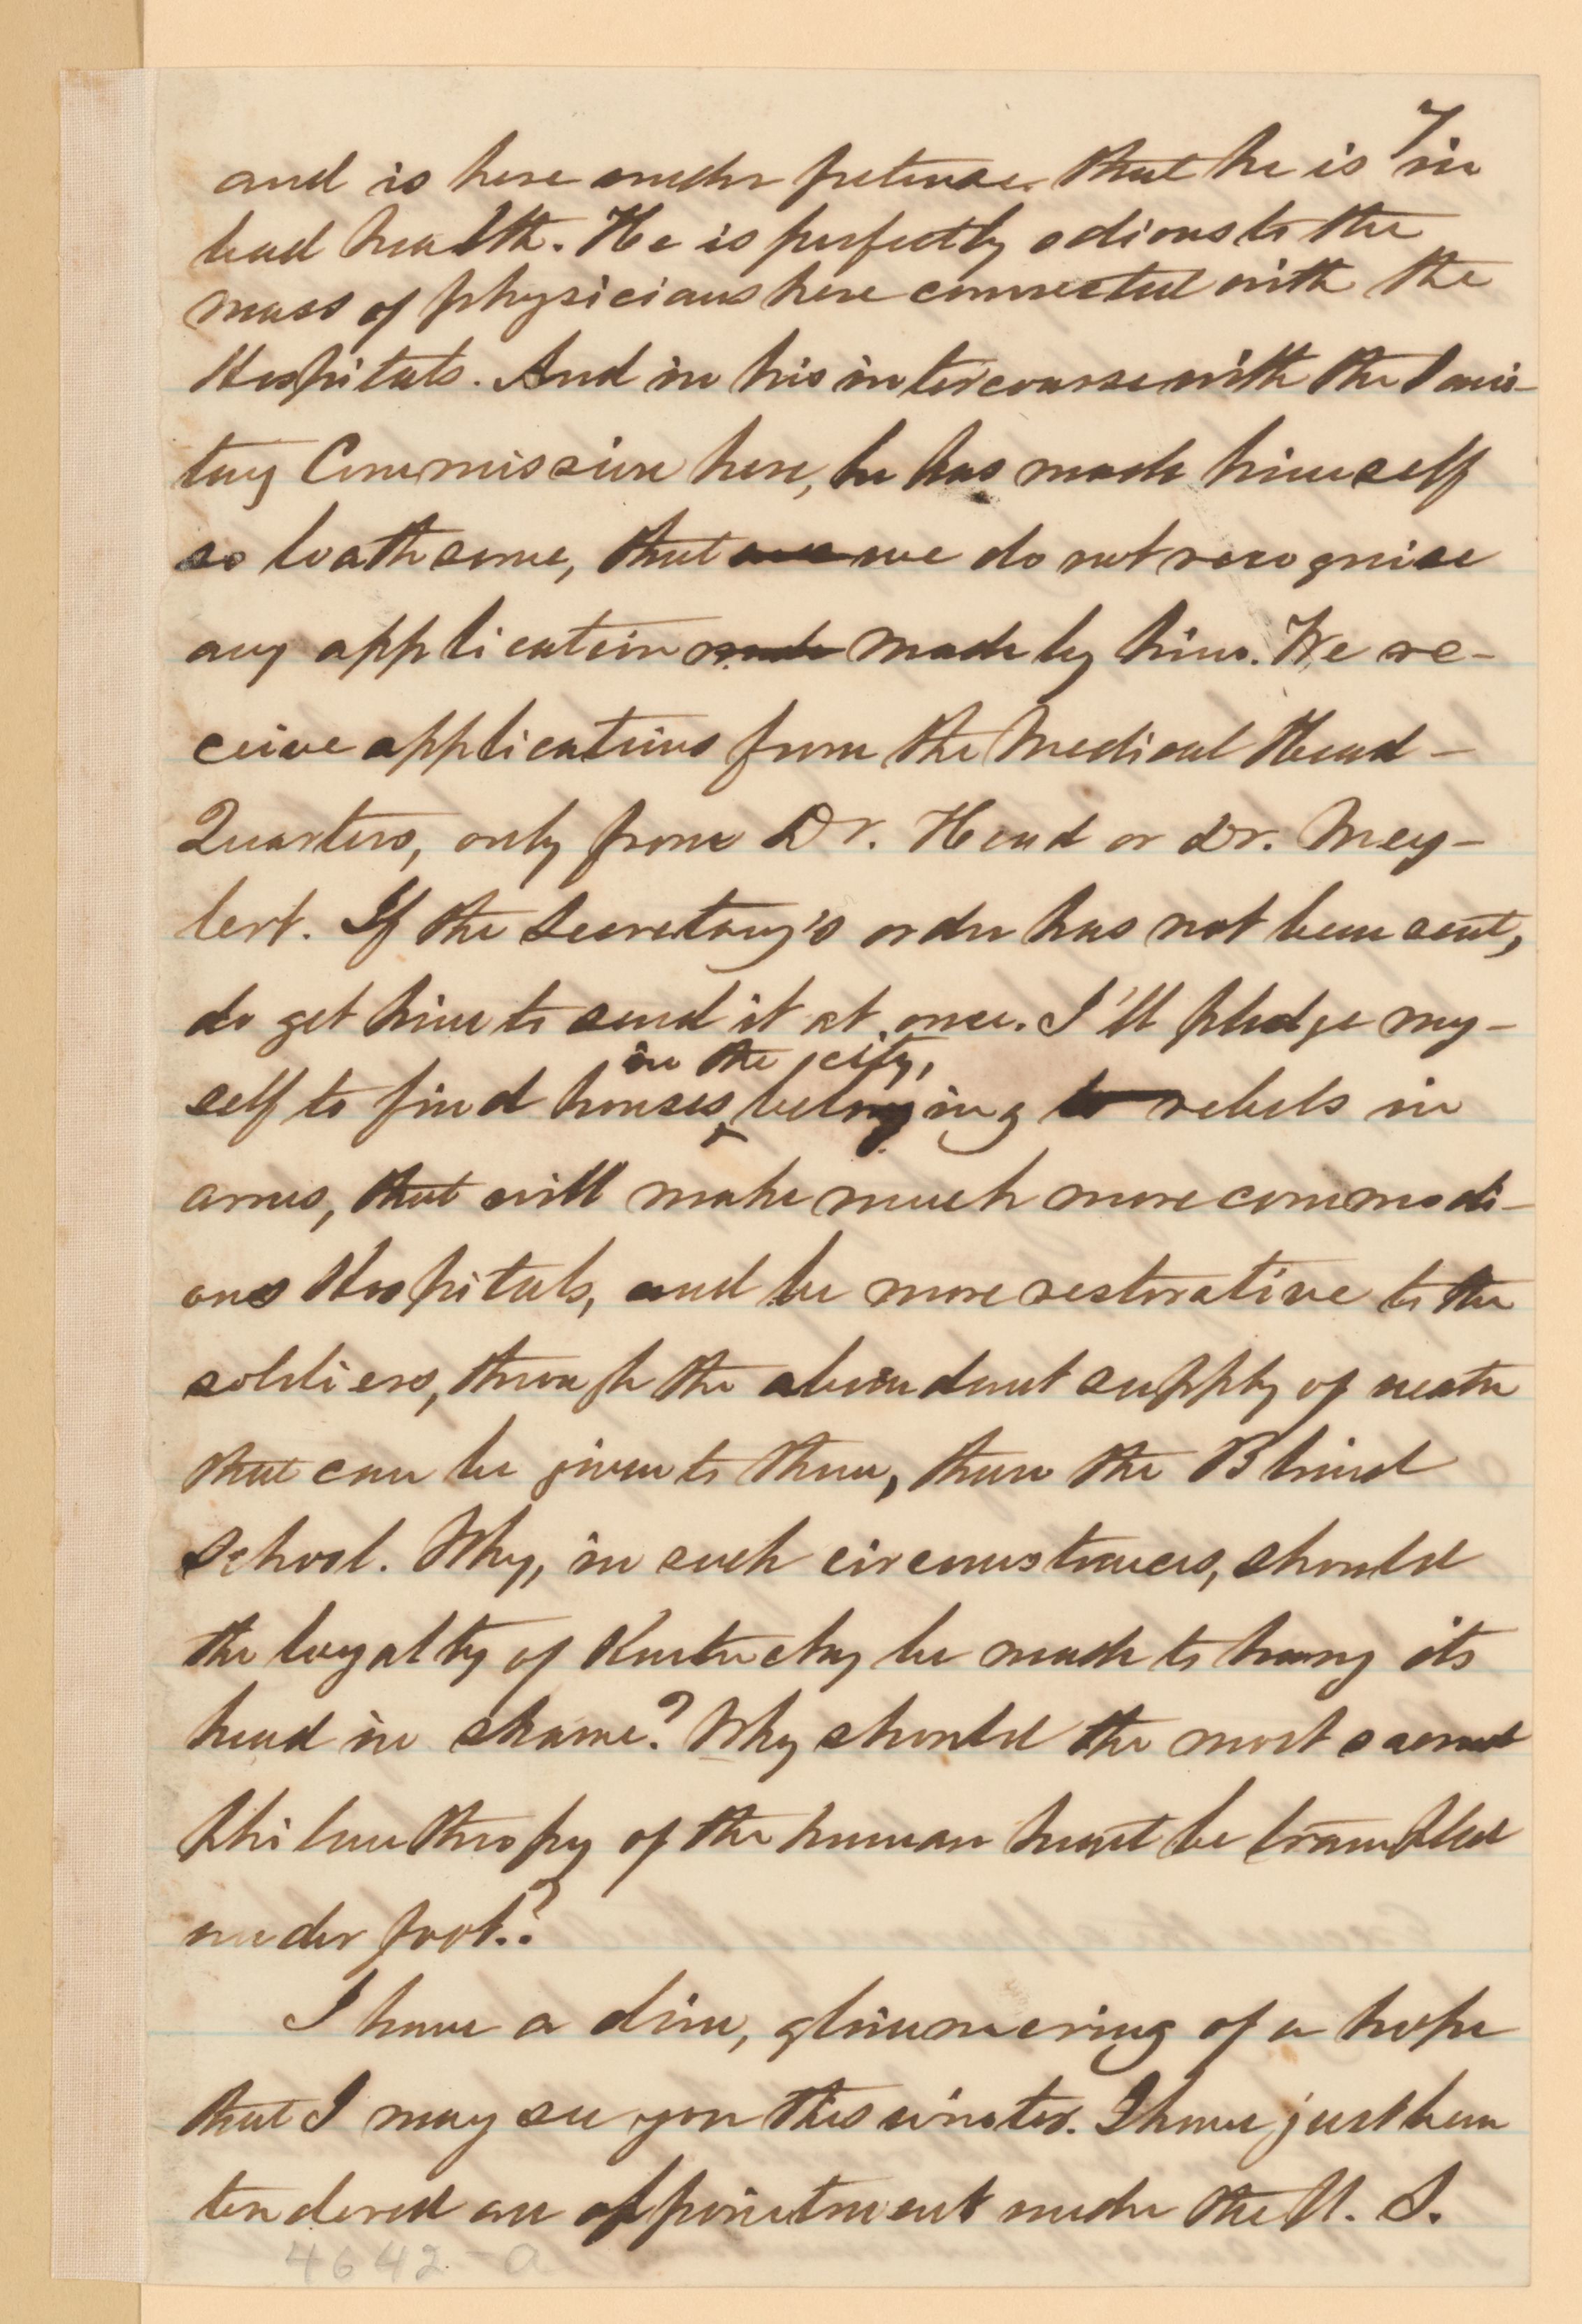 7
and is here under pretense that he is in
bad health. He is perfectly odious to the
mass of physicians here connected with the
Hospitals. And in his intercourse with the Sani-
tary Commission here, he has made himself
so loathsome, that we do not recognise
any application made made by him. We re-
ceive applications from the Medical Head-
Quarters, only from Dr. Head or Dr. Mey-
lert. If the Secretary's order has not been sent,
do get him to send it at once. I'll pledge my-
in the city,
self to find houses ‸ belonging to rebels in
arms, that will make much more commodi-
ous Hospitals, and be more restorative to the
soldiers, through the abundant supply of water
that can be given to them, than the Blind
School. Why, in such circumstances, should
the loyalty of Kentucky be made to hang its
head in shame? Why should the most sacred
philanthropy of the human heart be trampled
under foot?
I have a dim, glimmering of a hope
that I may see you this winter. I have just been
tendered an appointment under the U. S.
4642-a